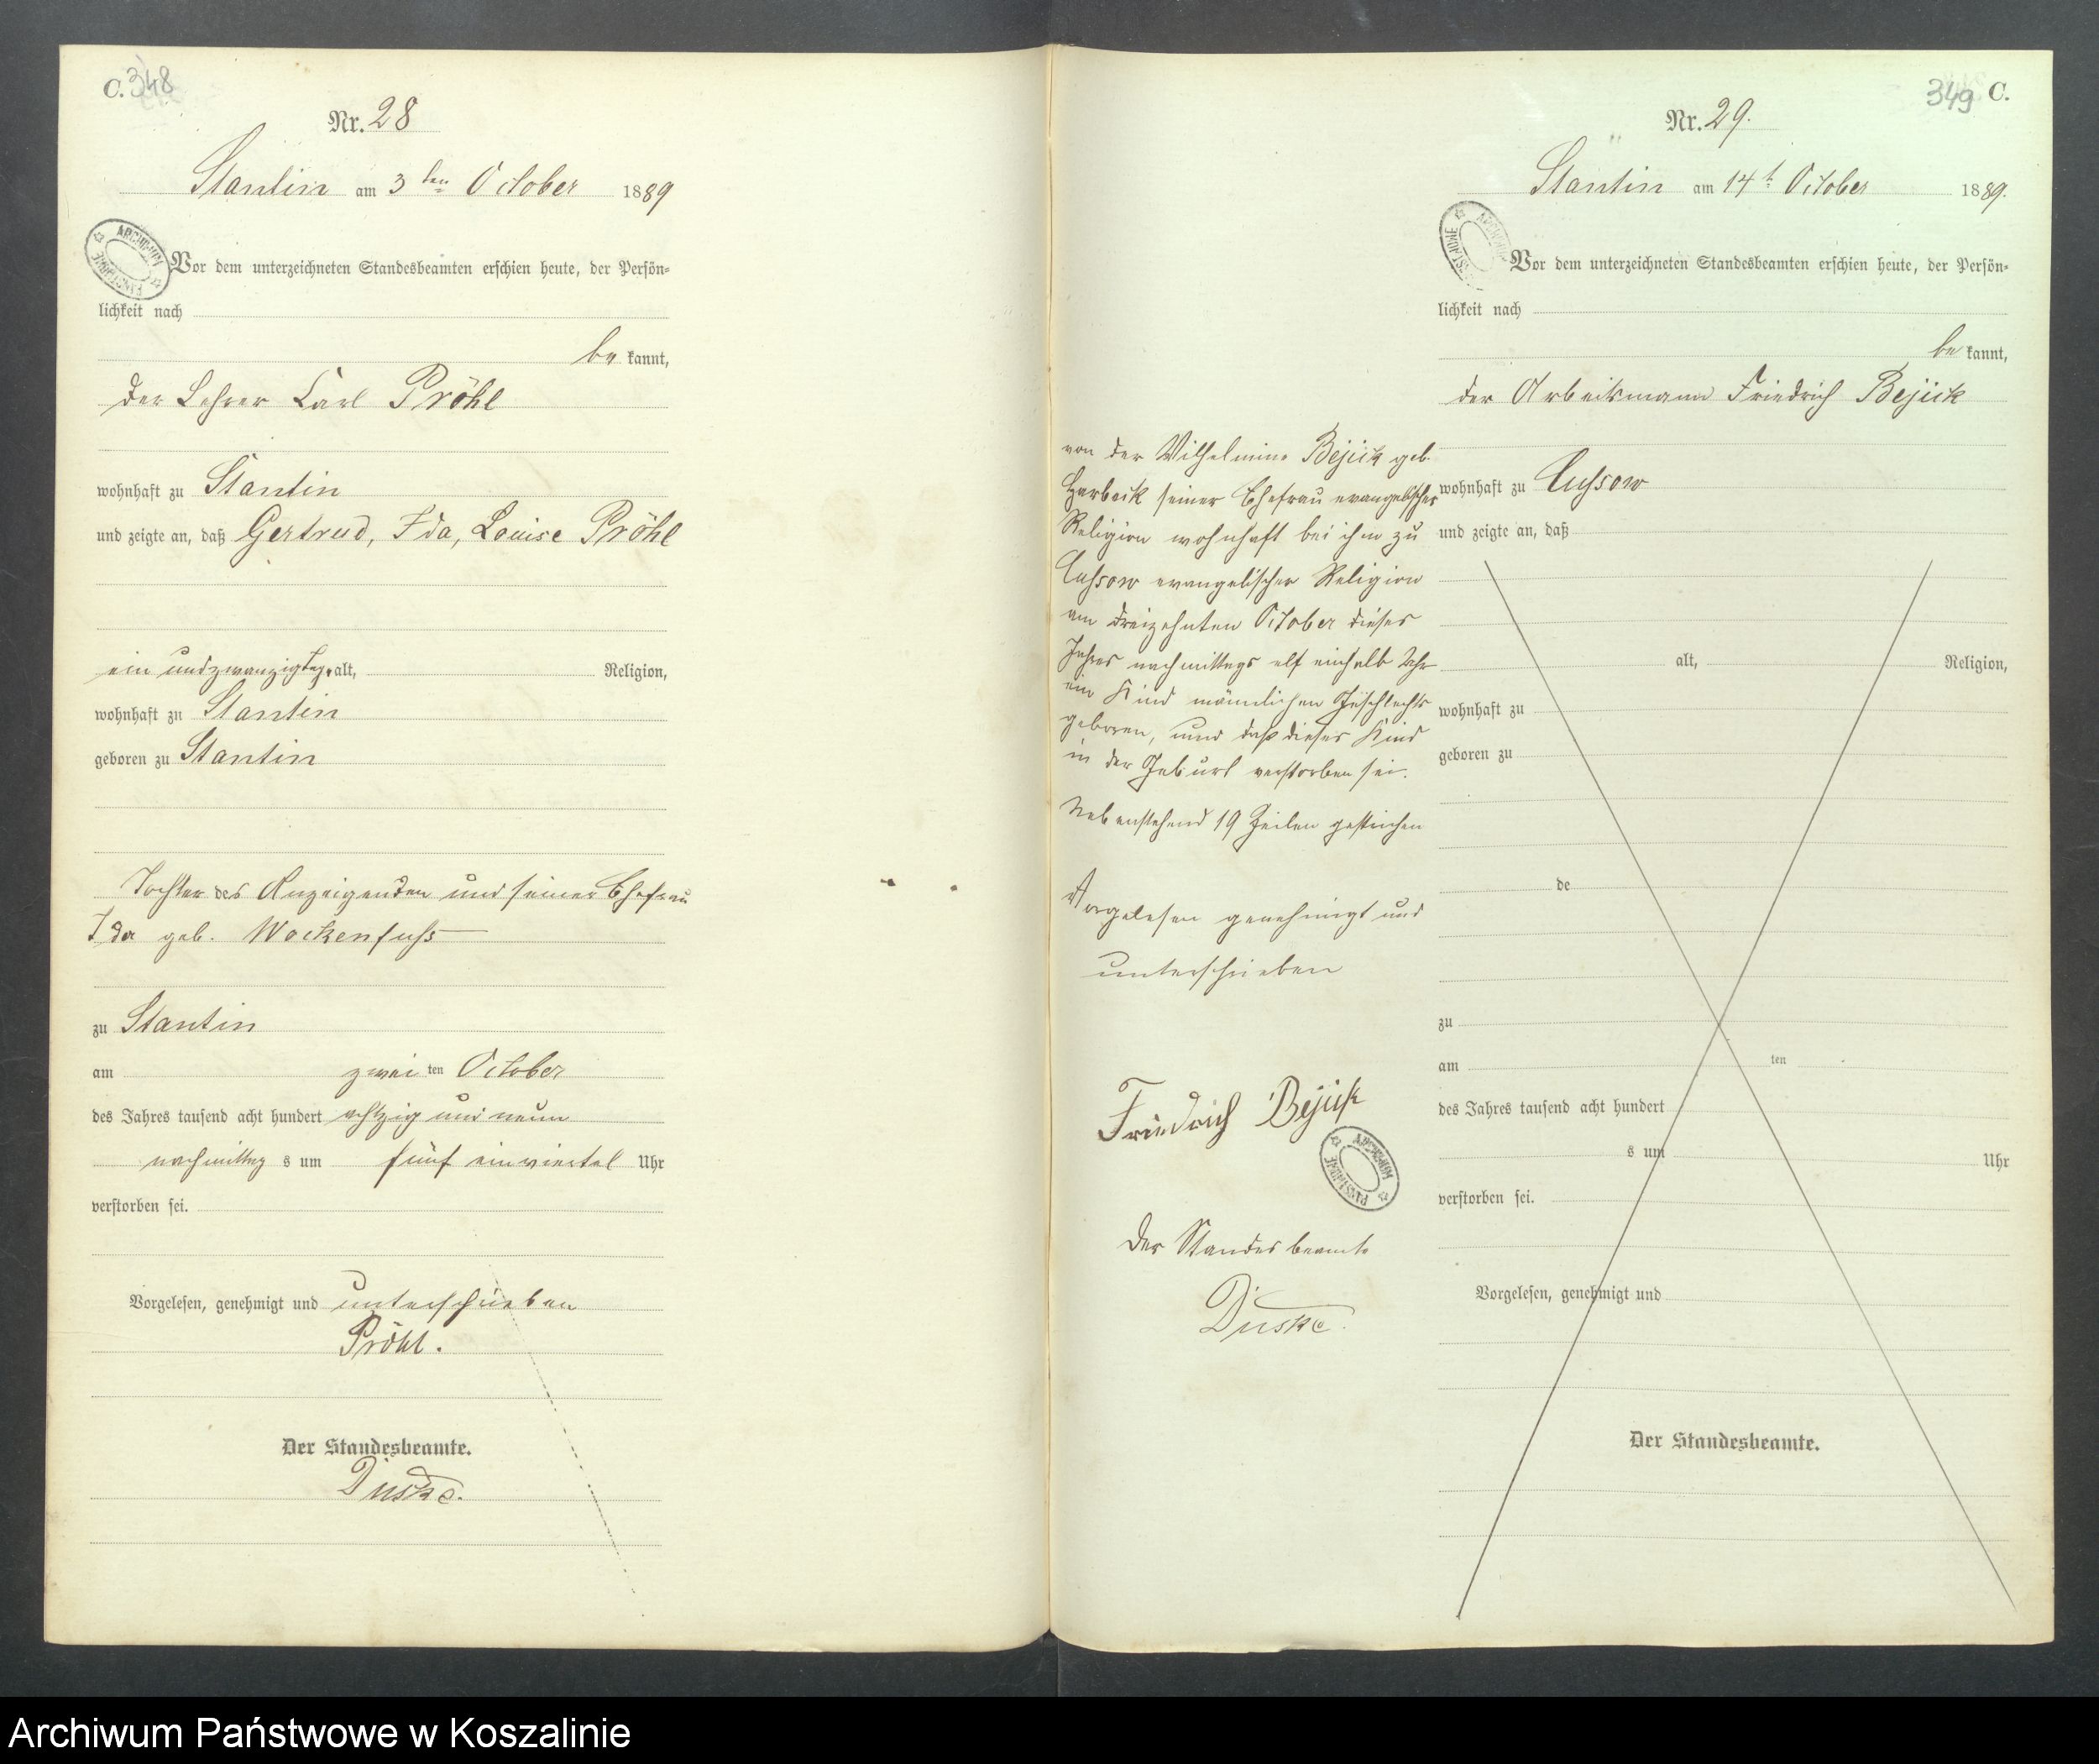 C. 348
Nr. 28
Stantin am 3ten October 1889
ARCHIWUM PAŃSTWOWE
Vor dem unterzeichneten Standesbeamten erschien heute, der Persön-
lichkeit nach
be kannt,
der Lehrer Carl Pröhl
wohnhaft zu Stantin
und zeigte an, daß Gertrud, Ida, Louise Pröhl
ein und zwanzig Tage alt, Religion,
wohnhaft zu Stantin
geboren zu Stantin
Tochter des Anzeigenden und seiner Ehefrau
Ida geb. Wockenfuss
zu Stantin
am zwei ten October
des Jahres tausend acht hundert achtzig und neun
nachmittag s um fünf einviertel Uhr
verstorben sei.
Vorgelesen, genehmigt und unterschrieben
Pröhl.
Der Standesbeamte.
Duske.
349 C.
Nr. 29.
Stantin am 14t October 1889.
ARCHIWUM PAŃSTWOWE
Vor dem unterzeichneten Standesbeamten erschien heute, der Persön-
lichkeit nach
be kannt,
der Arbeitsmann Friedrich Bejick
wohnhaft zu Lussow
und zeigte an, daß
alt, Religion,
wohnhaft zu
geboren zu
de
zu
am ten
des Jahres tausend acht hundert
s um Uhr
verstorben sei.
Vorgelesen, genehmigt und
Der Standesbeamte.
von der Wilhelmine Bejick geb.
Harbeck seiner Ehefrau evangelischer
Religion wohnhaft bei ihm zu
Lussow evangelischer Religion
am dreizehnten October dieses
Jahres nachmittags elf einhalb Uhr
ein Kind männlichen Geschlechts
geboren, und daß dieses Kind
in der Geburt verstorben sei.
Nebenstehend 19 Zeilen gestrichen
Vorgelesen genehmigt und
unterschrieben
Friedrich Bejick
ARCHIWUM PAŃSTWOWE
Der Standesbeamte
Duske.
Archiwum Państwowe w Koszalinie